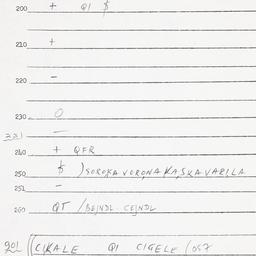 200 + QI $
210 +
220 –
230 Q
231 —
240 + QFR
$ ) SOROKA VORONA KAŠKA VARILA
250
251 –
260 QT / BEJNDL-CEJNDL
201 CIKALE QI CIGELE / 057